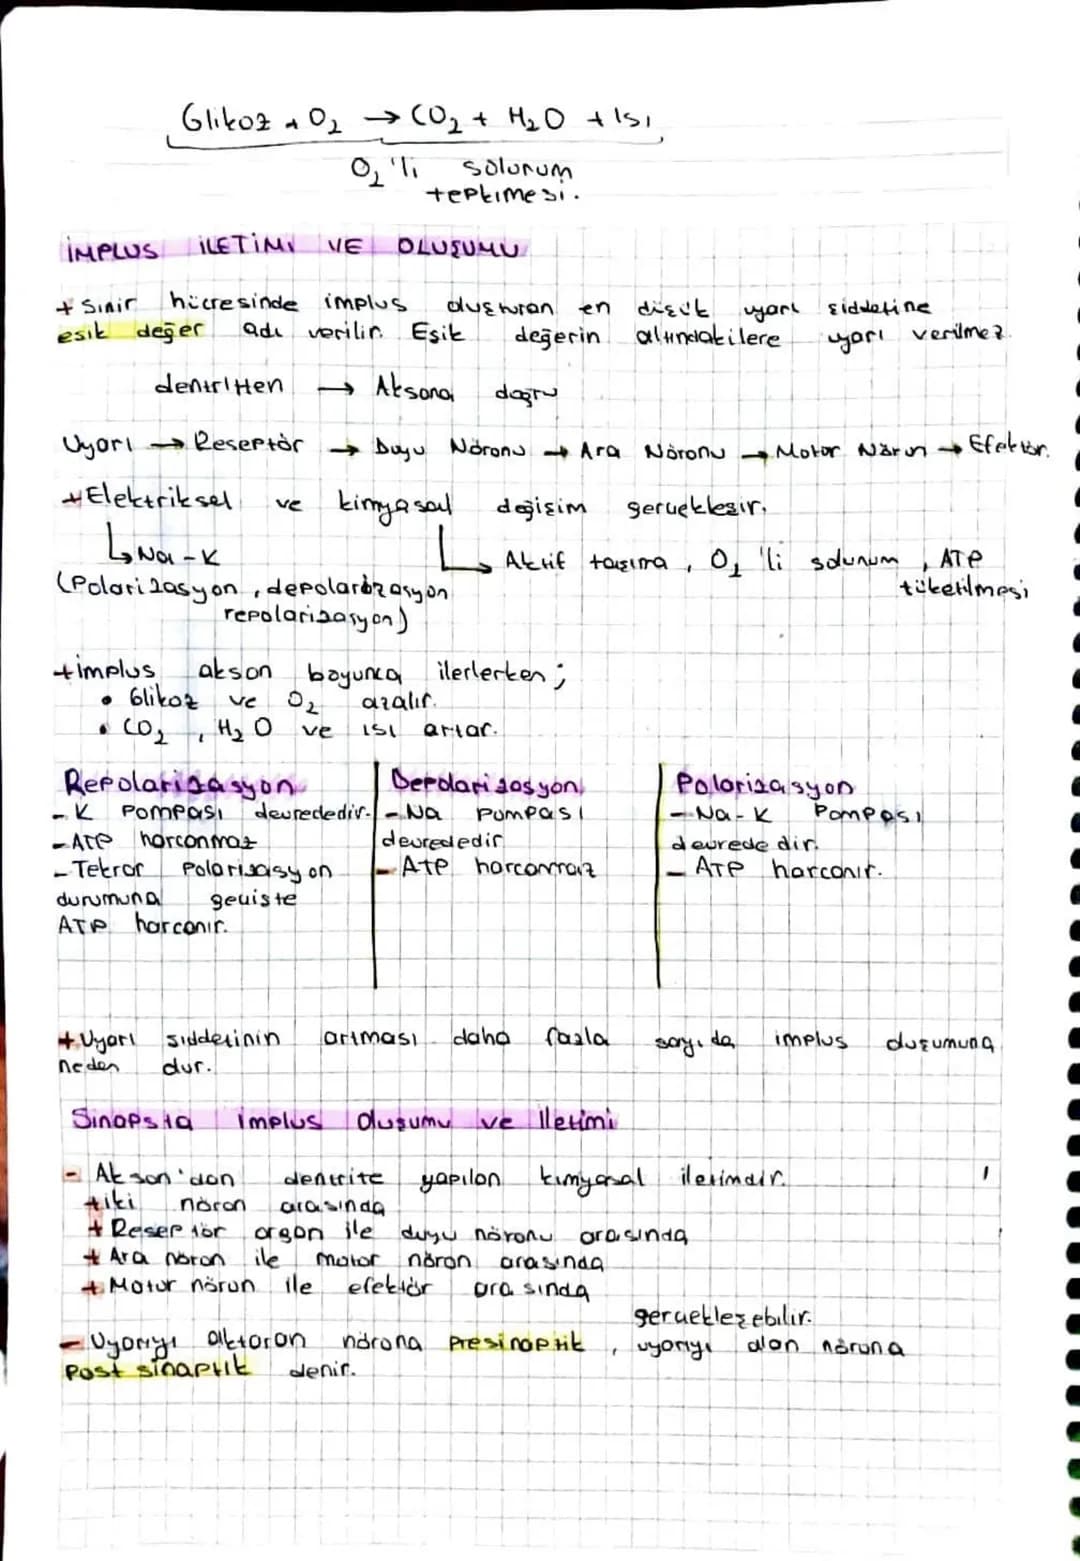 Glikoz + O2 → CO2 + H2O + Isı
O2'li solunum
tepkimesi.
İMPLUS İLETİMİ VE OLUŞUMU
+ Sinir hücresinde implus oluşturan en düşük uyarı şiddetine
eşik değer adı verilir. Eşik değerin altındakilere uyarı verilmez.
dentritten → Aksona doğru
Uyarı → Reseptör → Duyu Nöronu → Ara Nöronu → Motor Nörun → Efektör.
+ Elektriksel ve kimyasal değişim gerçekleşir.
↳ Na-K
↳ Aktif taşıma, O2'li solunum, ATP
tüketilmesi
(Polarizasyon, depolarizasyon
repolarizasyon)
+ implus akson boyunca ilerlerken;
• Glikoz ve O2 azalır.
• CO2, H2O ve ısı artar.
Repolarizasyon
- K Pompası devrededir.
- ATP harconmaz
- Tekrar Polarizasyon
durumuna geçişte
ATP harcanır.
Depolarizasyon
- Na Pompası
devrededir
- ATP harcanmaz
Polarizasyon
- Na-K Pompası
devrededir.
- ATP harcanır.
+ Uyarı şiddetinin artması daha fazla sayıda implus oluşumuna
neden olur.
Sinapsta implus oluşumu ve İletimi
- Akson'dan dentrite yapılan kimyasal iletimdir.
+ iki nöron arasında
+ Reseptör organ ile duyu nöronu arasında
+ Ara nöron ile motor nöron arasında
+ Motor nöron ile efektör arasında
gerçekleşebilir.
- Uyarıyı aktaran nörona Presinaptik, uyarıyı alan nörona
Post sinaptik denir.